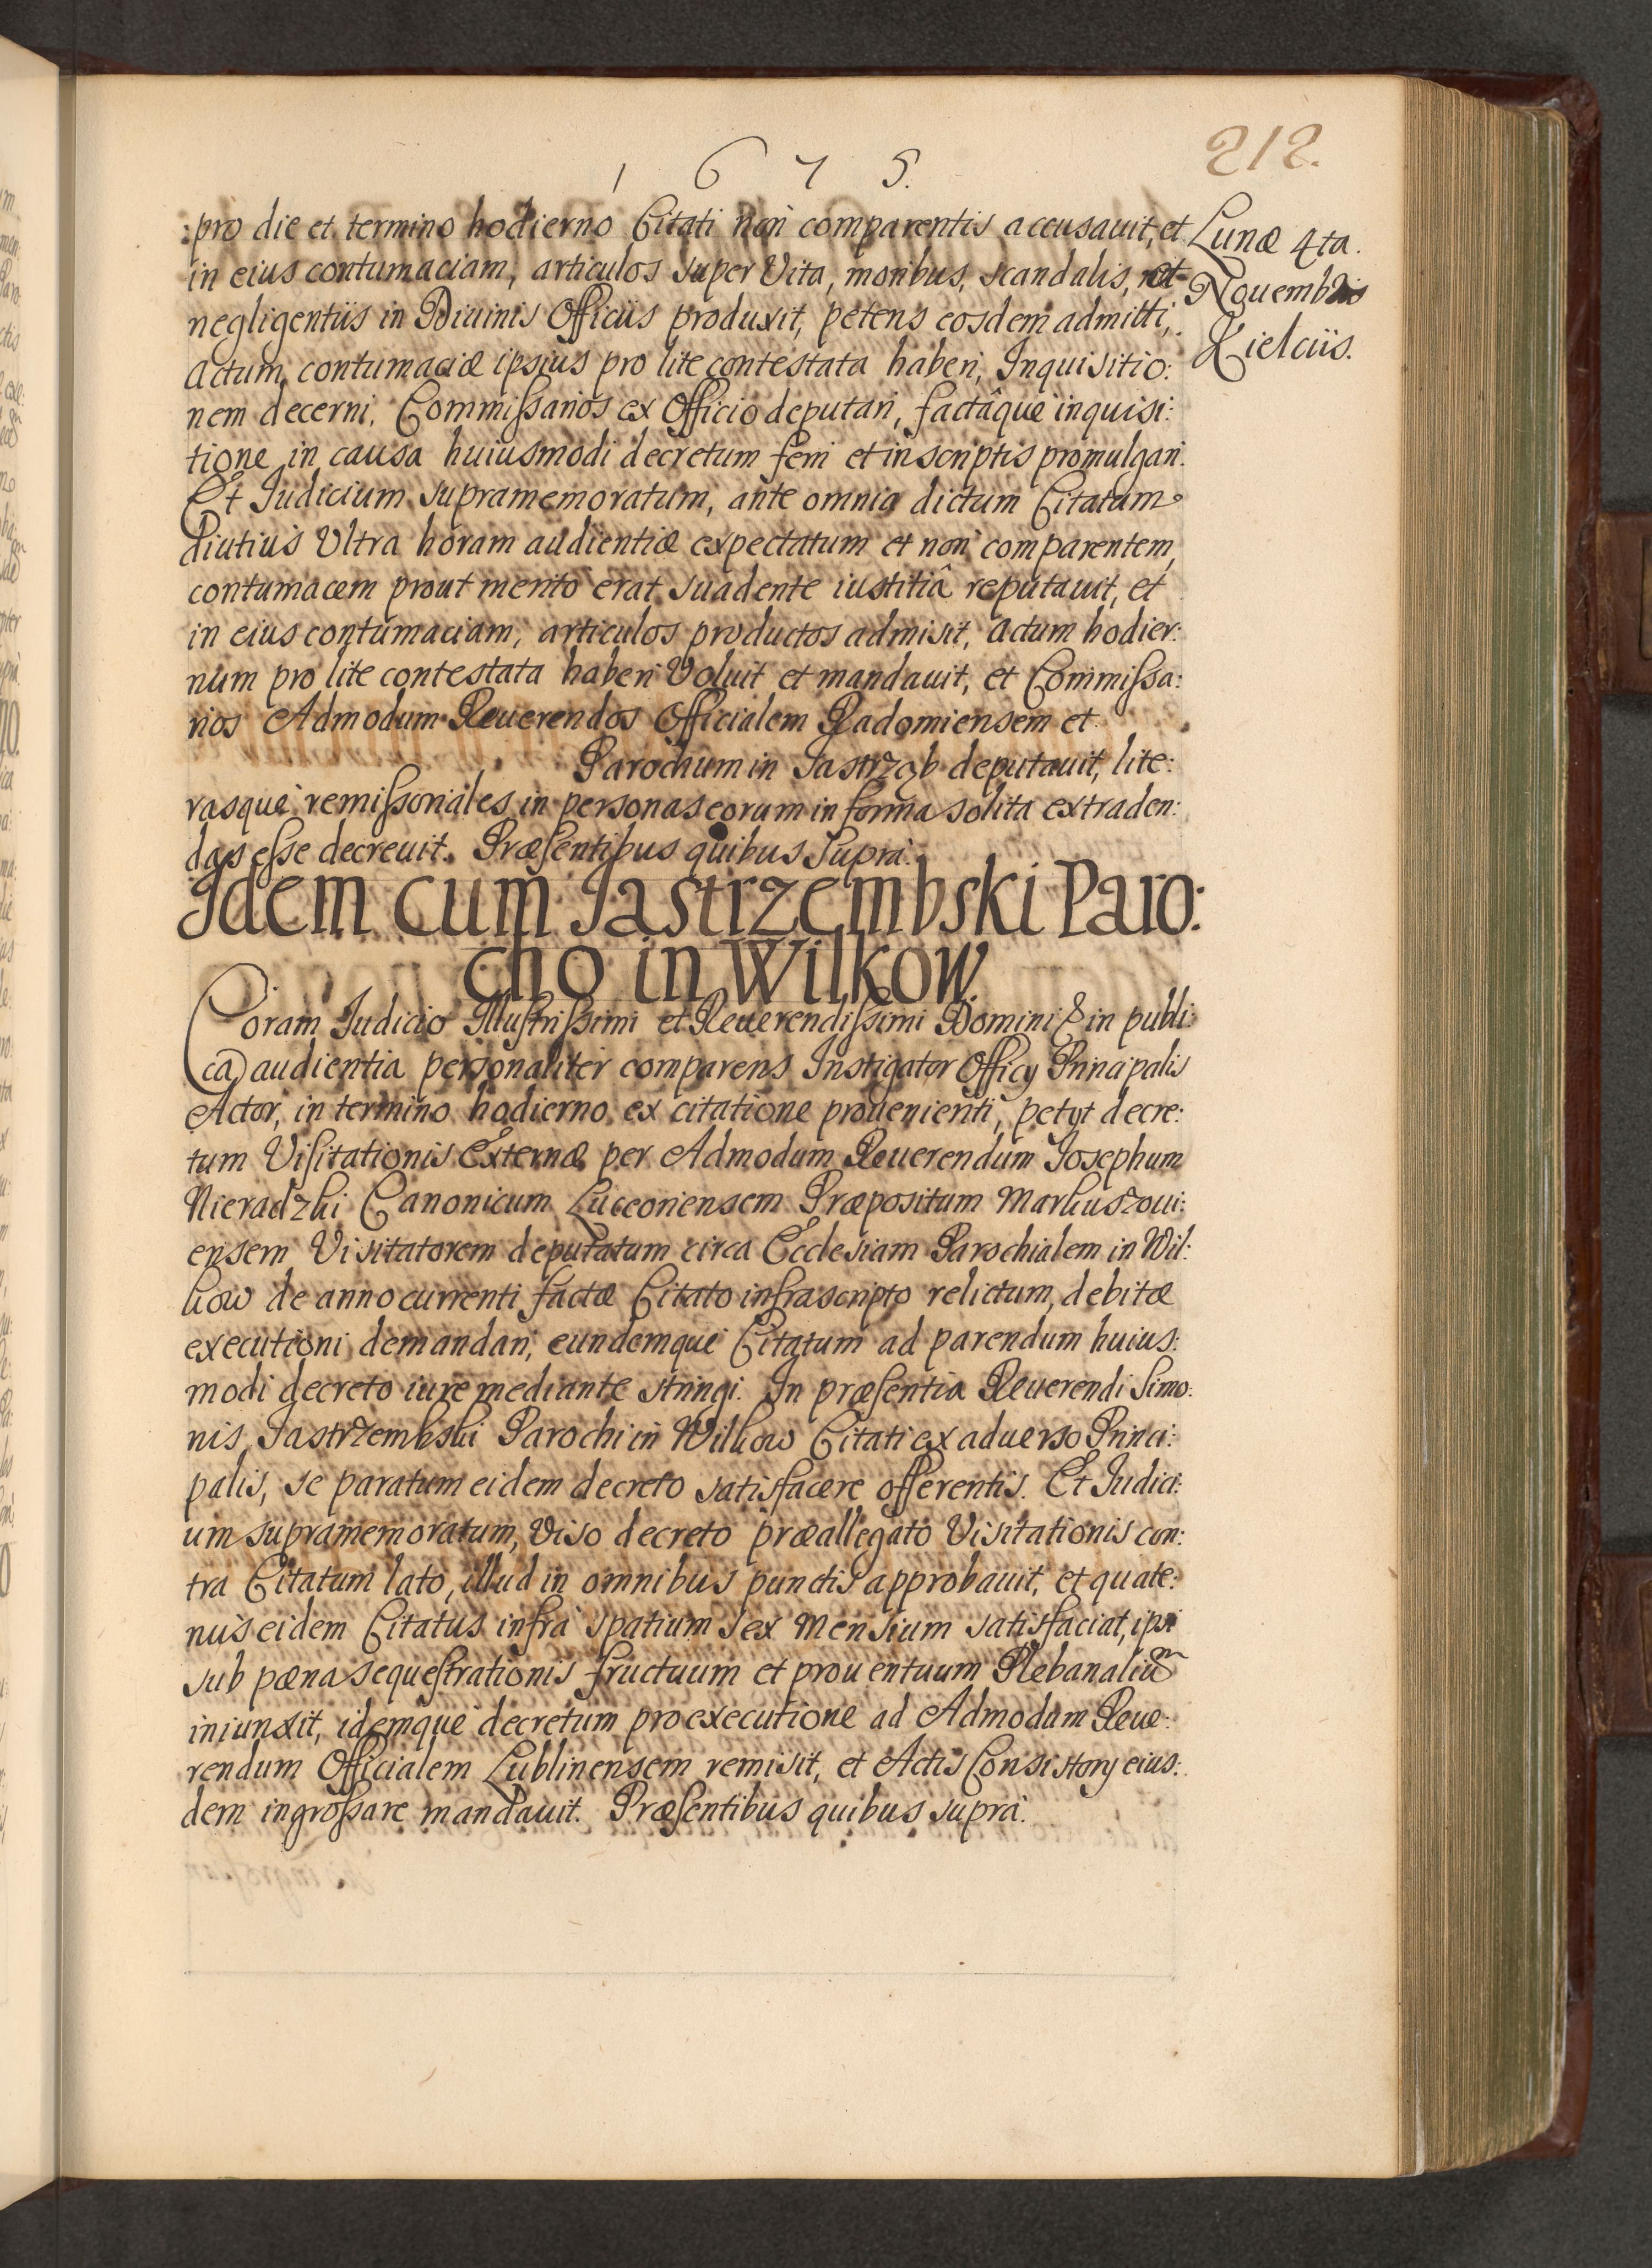 1675.
212.
pro die et termino hodierno Citati non comparentis accusauit, et
in eius contumaciam, articulos super Vita, moribus, scandalis, et
negligentiis in Diuinis Officiis produxit, petens eosdem admitti,
actum contumaciæ ipsius pro lite contestata haberi, Inquisitio:
nem decerni, Commissarios ex Officio deputari, factâque inquisi:
tione in causa huiusmodi decretum feri et in scriptis promulgari.
Et Iudicium supramemoratum, ante omnia dictum Citatum
diutius Vltra horam audientiæ expectatum et non comparentem,
contumacem prout merito erat suadente iustitiâ reputauit, et
in eius contumaciam, articulos productos admisit, actum hodier:
num pro lite contestata haberi Voluit et mandauit, et Commissa:
rios Admodum Reuerendos Officialem Radomiensem et
Parochum in Jastrząb deputauit, lite:
rasque remissoriales in personas eorum in forma solita extraden:
das esse decreuit. Præsentibus quibus supra.
Lunæ 4ta.
Nouembris
Kielciis.
Idem cum Jastrzembski Paro:
cho in Wilkow
Coram Iudicio Illustrissimi et Reuerendissimi Domini & in publi:
ca audientia personaliter comparens Instigator Officij Principalis
Actor, in termino hodierno ex citatione prouenienti, petijt decre:
tum Visitationis Externæ per Admodum Reuerendum Josephum
Nieradzki Canonicum Luceoriensem Præpositum Markuszoui:
ensem Visitatorem deputatum circa Ecclesiam Parochialem in Wil:
kow de anno currenti factæ Citato infrascripto relictum, debitæ
executioni demandari, eundemque Citatum ad parendum huius:
modi decreto iure mediante stringi. In præsentia Reuerendi Simo:
nis Jastrzembski Parochi in Wilkow Citati ex aduerso Princi:
palis, se paratum eidem decreto satisfacere offerentis. Et Iudici:
um supramemoratum, Viso decreto præallegato Visitationis con:
tra Citatum lato, illud in omnibus punctis approbauit, et quate:
nus eidem Citatus infra spatium sex Mensium satisfaciat, ipsi
sub pæna sequestrationis fructuum et prouentuum Plebanaliũ
iniunxit, idemque decretum pro executione ad Admodum Reue:
rendum Officialem Lublinensem remisit, et Actis Consistorij eius:
dem ingrossare mandauit. Præsentibus quibus supra.